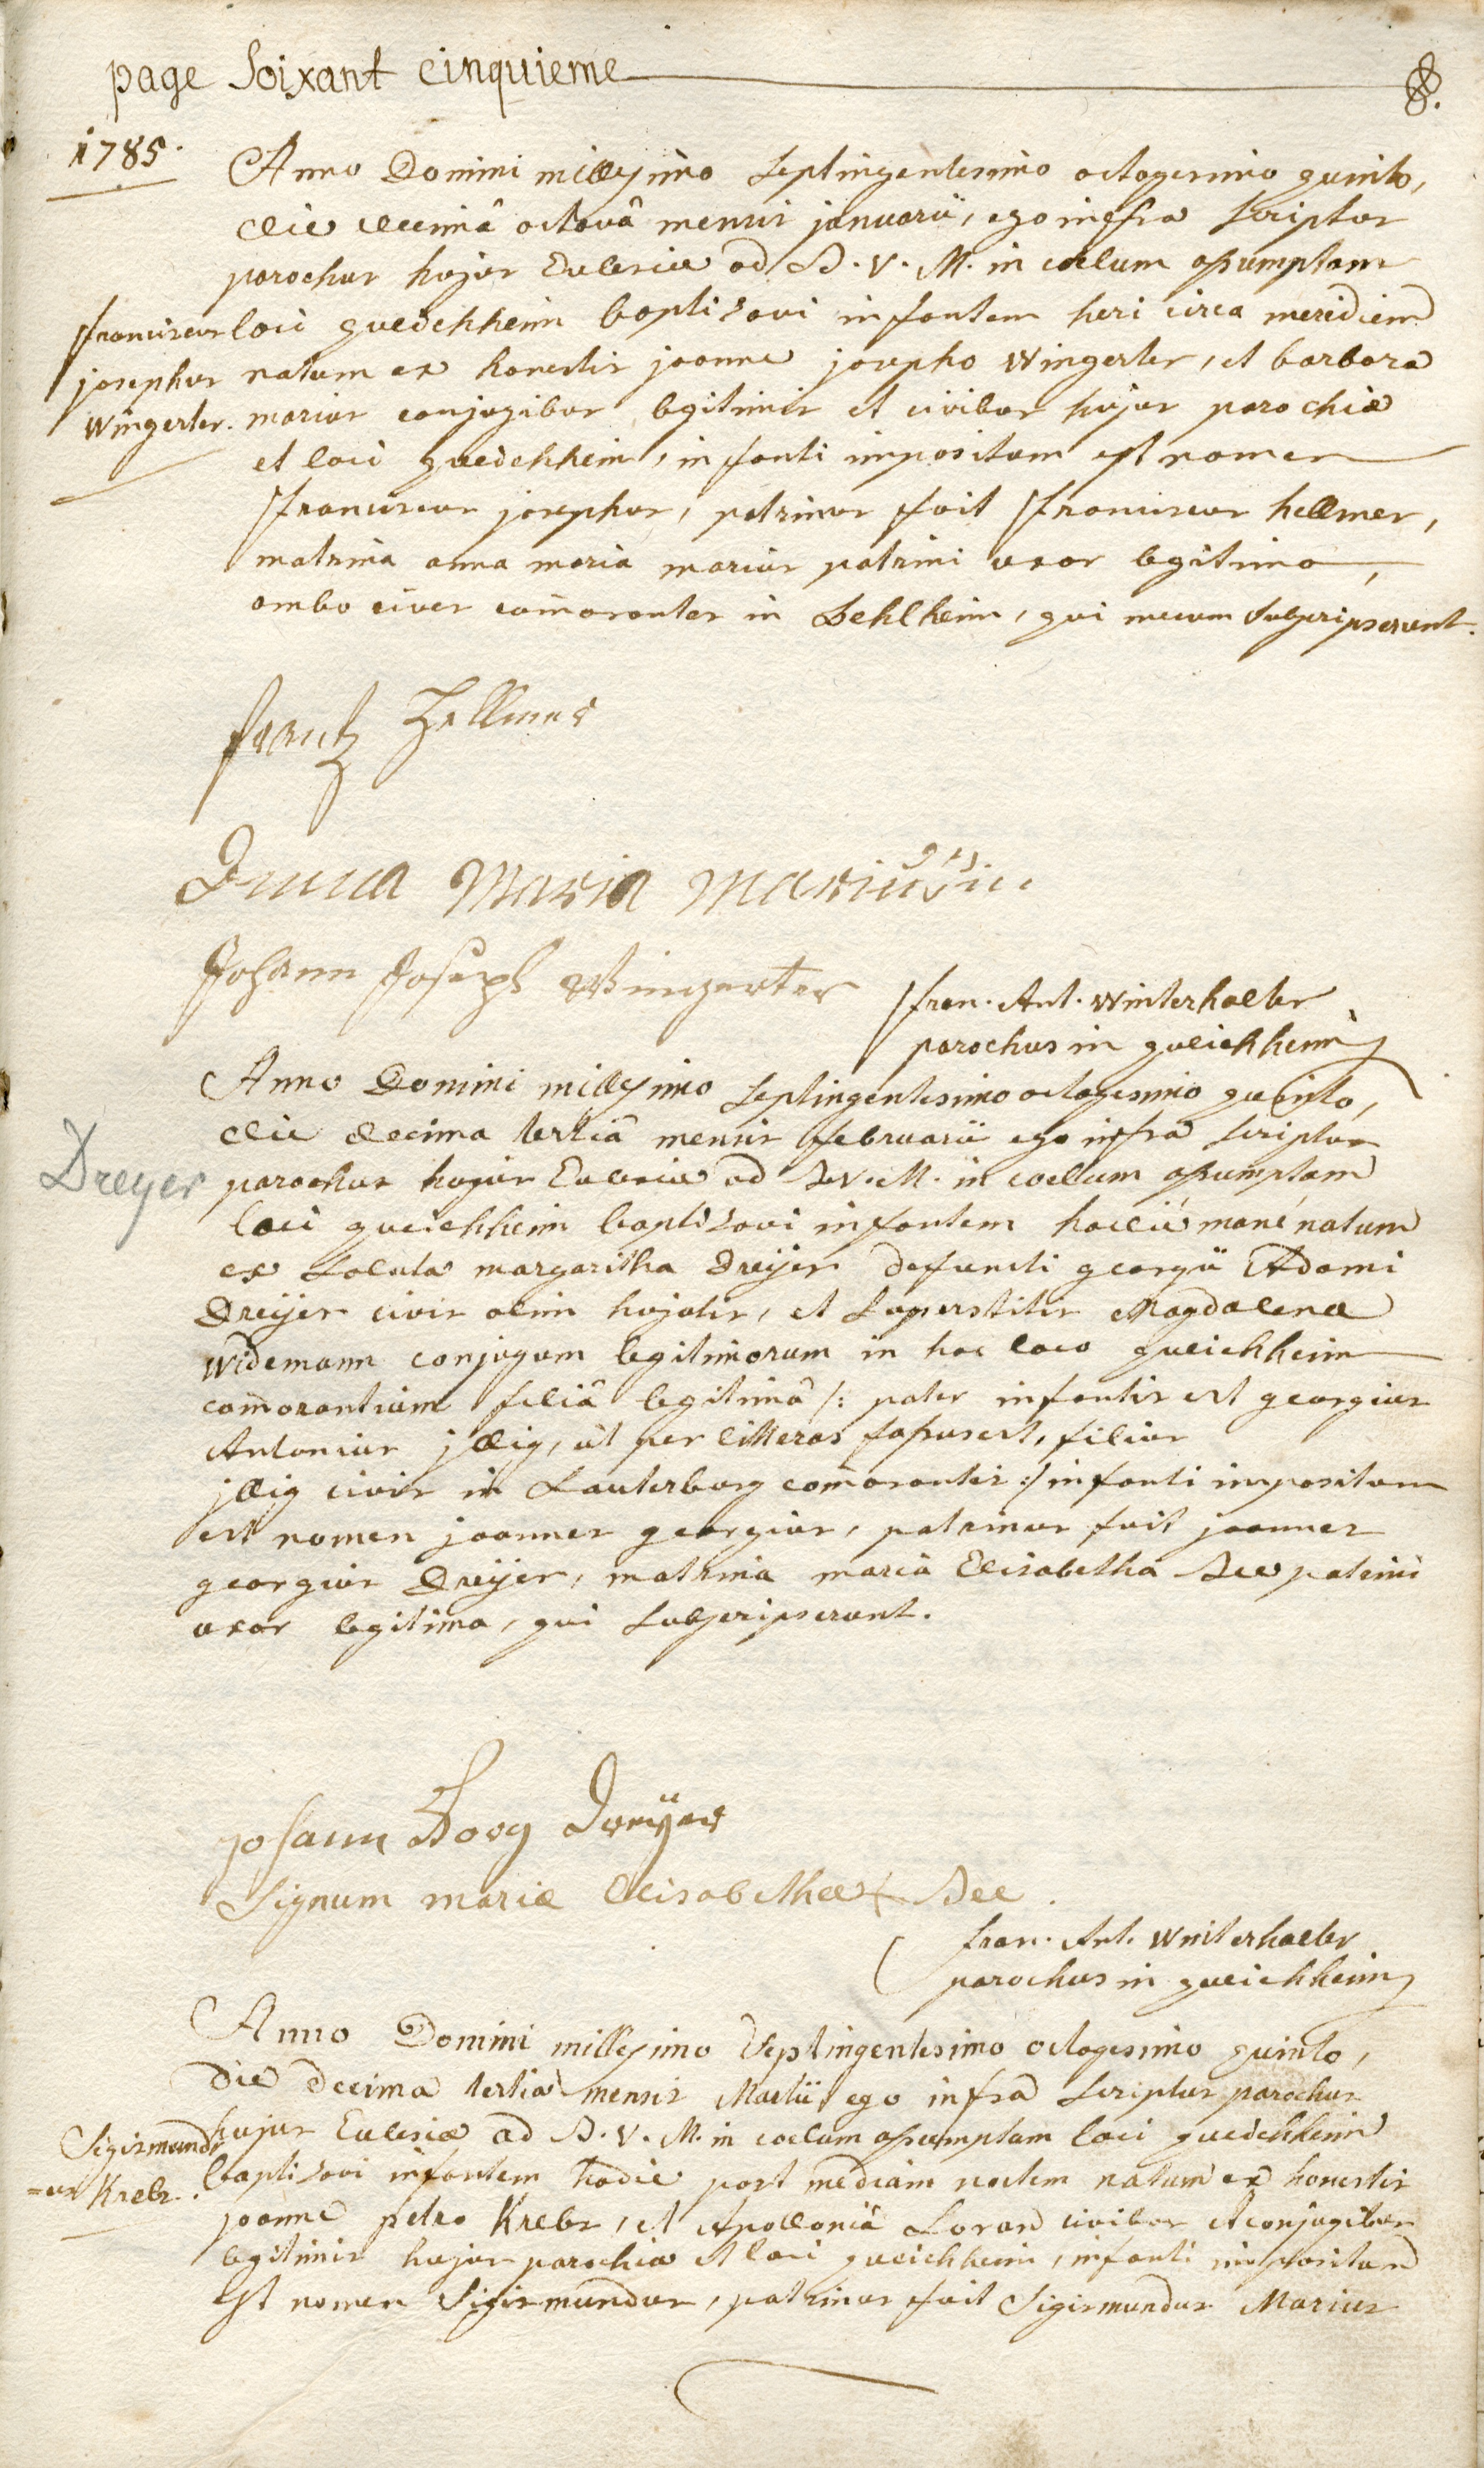 page Soixant cinquieme
1785.
Anno Domini millesimo Septingentesimo octogesimo quinto,
die decimâ octavâ mensis januarii, ego infra Scriptus
parochus hujus Ecclesiae ad B. V. M. in coelum assumptam
loci gueichheim baptisavi infantem heri circa meridiem
natum ex honestis joanne josepho Wingerter, et barbara
marius conjugibus legitimis et civibus hujus parochiae
et loci gueichheim, infanti impositum est nomen
franciscus josephus, patrinus fuit franciscus hellmer,
matrina anna maria marius patrini uxor legitima,
ambo cives com̄orantes in Behlheim, qui mecum Subscripserunt.
franciscus
josephus
Wingerter.
frantz Hellmer
Anna Maria Mariußin
Johann Joseph Wingerter
fran. Ant. Winterhalter
parochus in gueichheim
Anno Domini millesimo Septingentesimo octogesimo quinto,
die decima tertiâ mensis februarii ego infra Scriptus
parochus hujus Ecclesiae ad B. V. M. in coelum assumptam
loci gueichheim baptisavi infantem hodie mane natum
ex Soluta margaritha Dreÿer defuncti georgii Adami
Dreÿer civis olim hujatis, et Superstitis Magdalenae
Widemann conjugum legitimorum in hoc loco gueichheim
com̄orantium filiâ legitimâ /: pater infantis est georgius
Antonius jllig, ut per litteras fassus est, filius
jllig civis in Lauterburg com̄orantis :/ infanti impositum
est nomen joannes georgius, patrinus fuit joannes
georgius Dreÿer, matrina maria Elisabetha Bee patrini
uxor legitima, qui Subscripserunt.
Dreyer
Johann Georg Dreÿer
Signum mariae Elisabethae + Bee.
fran. Ant. Winterhalter
parochus in gueichheim
Anno Domini millesimo Septingentesimo octogesimo quinto,
die decima tertia mensis Martii ego infra Scriptus parochus
hujus Ecclesiae ad B. V. M. in coelum assumptam loci gueichheim
baptisavi infantem hodie post mediam noctem natum ex honestis
joanne petro Krebs, et Apolloniâ Lorand civibus et conjugibus
legitimis hujus parochiae et loci gueichheim, infanti impositum
est nomen Sigismundus, patrinus fuit Sigismundus Marius
Sigismund
=us Krebs.